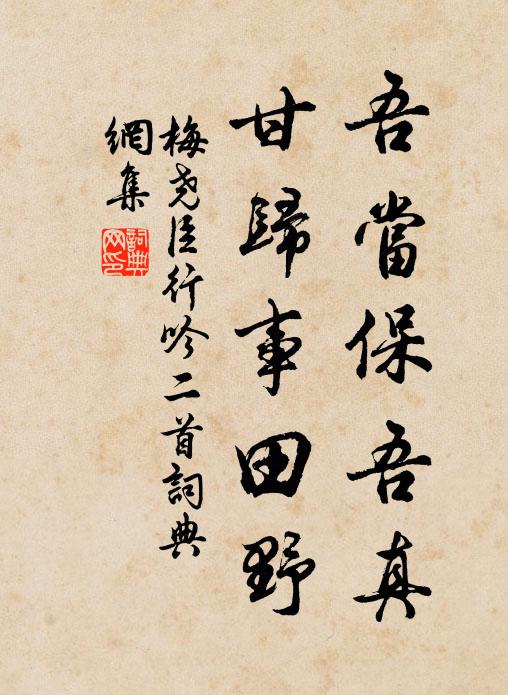 吾當保吾真
甘歸事田野
梅尧臣行吟二首詞典
網集
詞典
网印